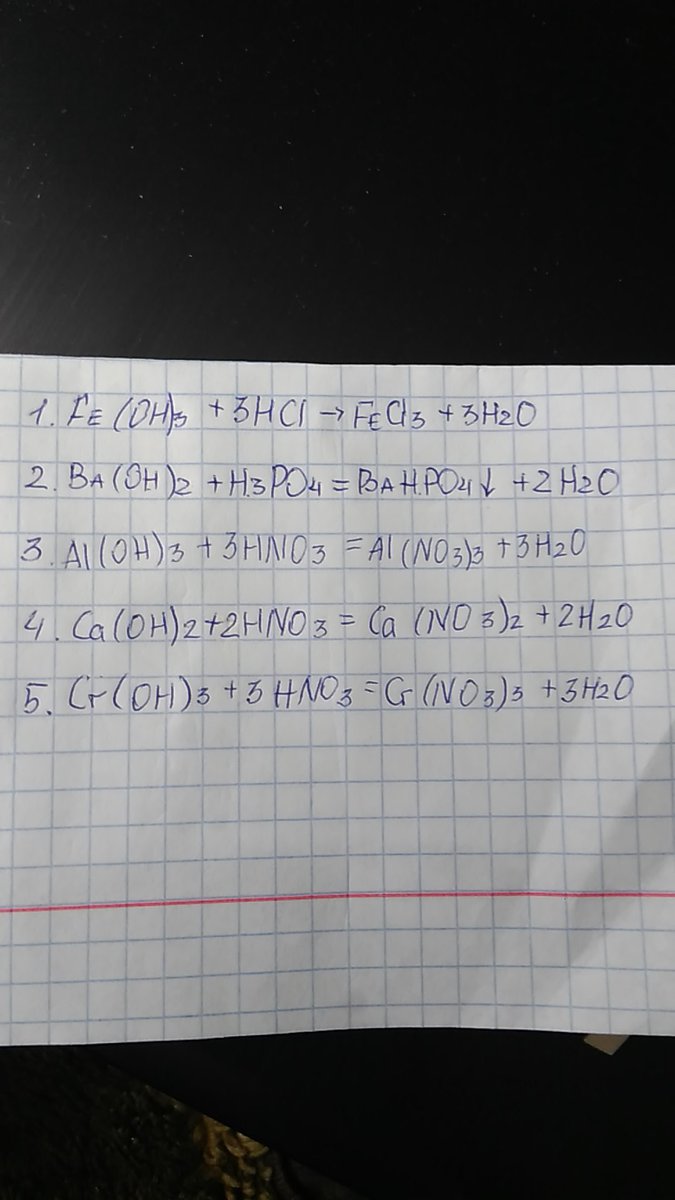 1. FE(OH)3 + 3HCl → FECl3 + 3H2O
2. BA(OH)2 + H3PO4 = BAHPO4↓ + 2H2O
3. Al(OH)3 + 3HNO3 = Al(NO3)3 + 3H2O
4. Ca(OH)2 + 2HNO3 = Ca(NO3)2 + 2H2O
5. Cr(OH)3 + 3HNO3 = Cr(NO3)3 + 3H2O